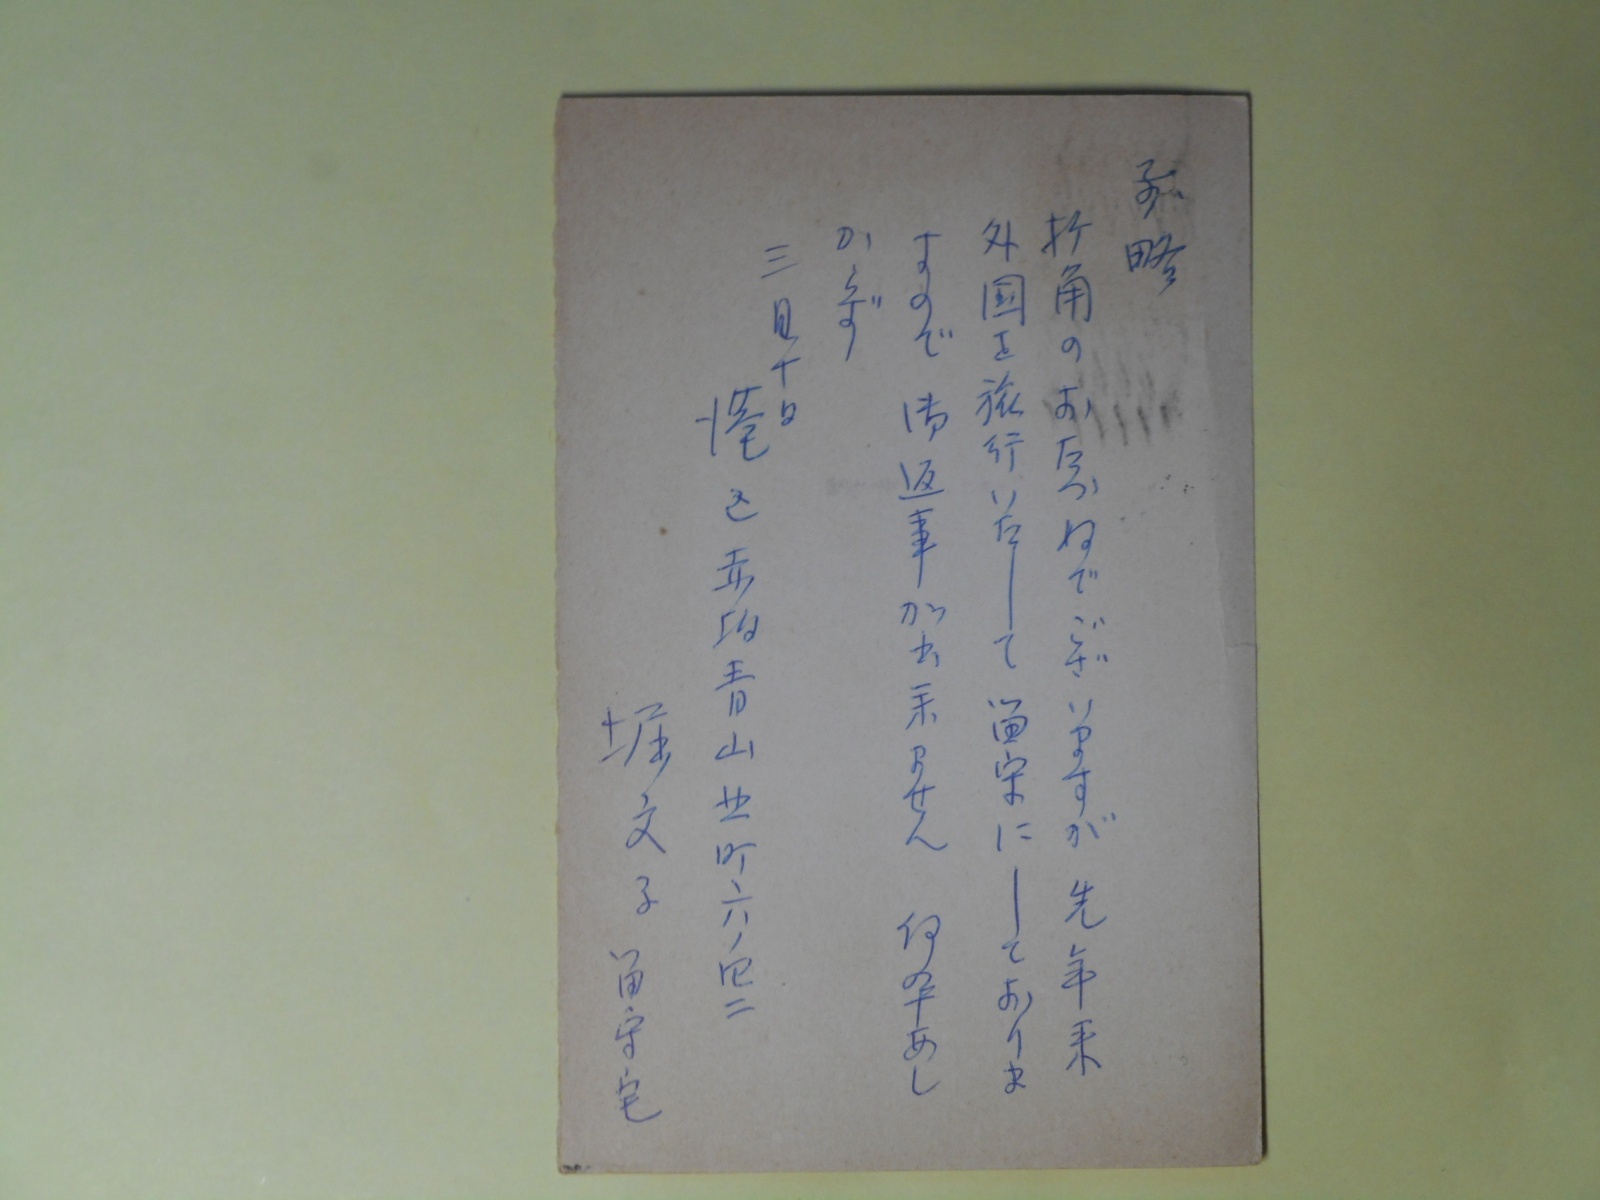 前略
折角のお尋ねでございますが 先年来
外国を旅行いたして 留守にしておりま
すので 御返事が出来ません 何卒あし
からず
三月十日
港区赤坂青山北町六ノ四二
堀文子 留守宅